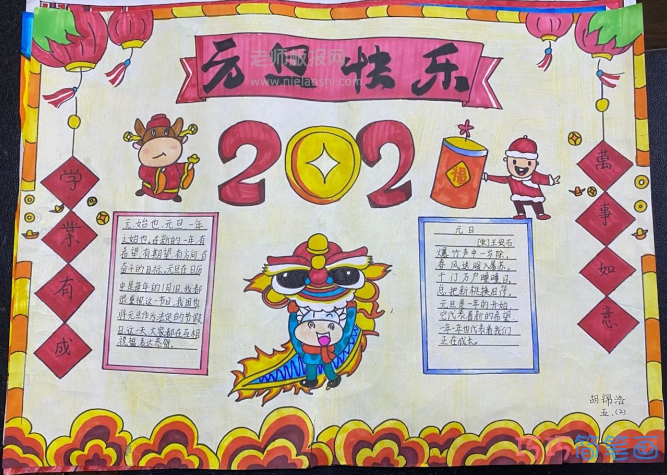 元旦快乐
老师板报网
www.nielaoshi.com
202
福
学
业
有
成
萬
事
如
意
元,始也,元旦一年
之始也,在新的一年,有
希望,有期望,有方向,有
奋斗的目标,元旦在日历
中是每年的1月1日,我都
很重视这一节,我国也
将元旦作为法定的节假
日这一天,大家都在互相
祝福,表达希望。
元日
[宋]王安石
爆竹声中一岁除,
春风送暖入屠苏。
千门万户曈曈日,
总把新桃换旧符。
元旦是一年的开始,
它代表着新的希望,
一年一年也代表着我们
正在成长。
胡锦浩
五.(2)
简笔画